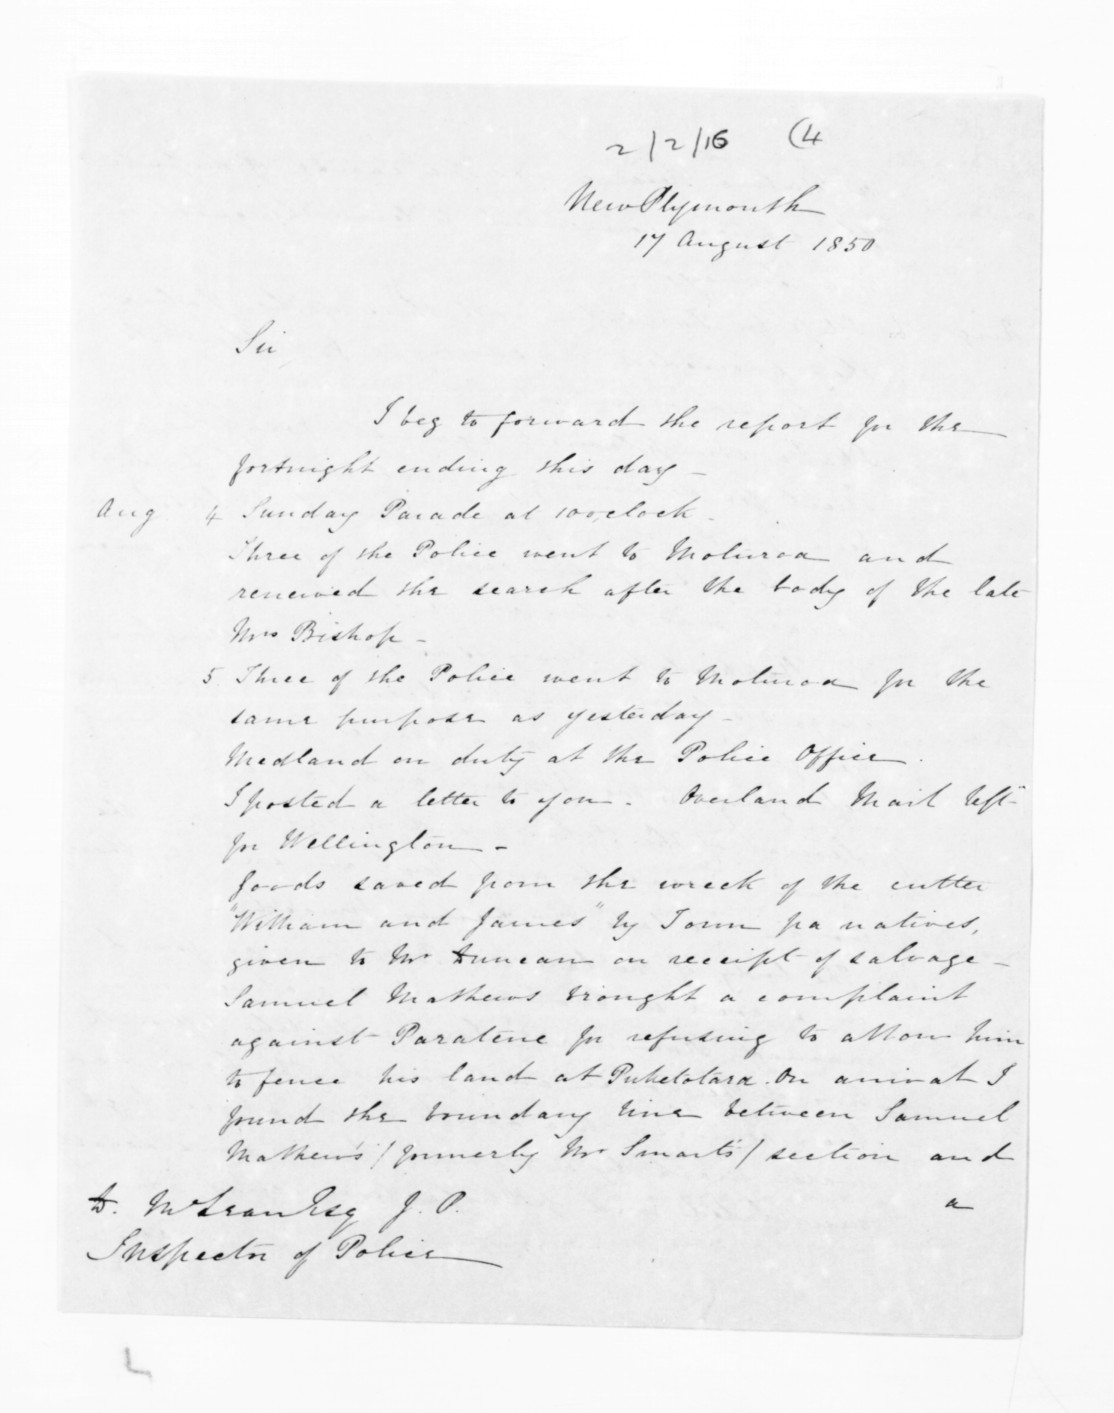 2/2/16 (4
New Plymouth
17 August 1850
Sir
I beg to forward the report for the
fortnight ending this day -
Aug 4 Sunday Parade at 10 o,clock -
Three of the Police went to Moturoa and
renewed the search after the body of the late
Mrs Bishop -
5 Three of the Police went to Moturoa for the
same purpose as yesterday -
Medland on duty at the Police Office.
I posted a letter to you - Overland Mail left
for Wellington -
Goods saved from the wreck of the cutter
"William and James" by Town pa natives,
given to Mr Duncan on receipt of salvage -
Samuel Mathews brought a complaint
against Paratene for refusing to allow him
to fence his land at Puketotara. On arrival I
found the boundary line between Samuel
Mathew's / formerly Mr Smart's / section and
a
D. McLean Esq J. P.
Inspector of Police